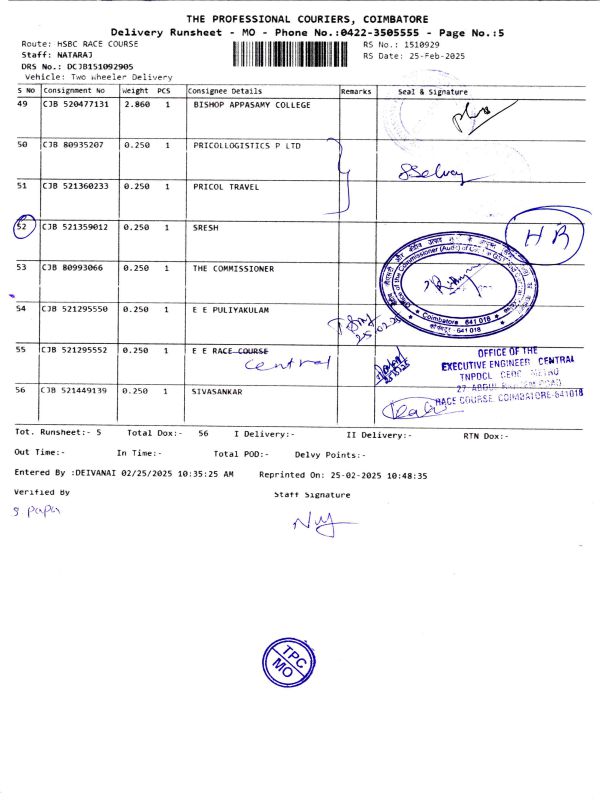 THE PROFESSIONAL COURIERS, COIMBATORE
Delivery Runsheet - MO - Phone No.:0422-3505555 - Page No.:5
Route: HSBC RACE COURSE
RS No.: 1510929
Staff: NATARAJ
RS Date: 25-Feb-2025
DRS No.: DCJB151092905
Vehicle: Two Wheeler Delivery
S No Consignment No Weight PCS Consignee Details Remarks Seal & Signature
49 CJB 520477131 2.860 1 BISHOP APPASAMY COLLEGE
50 CJB 80935207 0.250 1 PRICOLLOGISTICS P LTD
SSelvay
51 CJB 521360233 0.250 1 PRICOL TRAVEL
52 CJB 521359012 0.250 1 SRESH
HR
53 CJB 80993066 0.250 1 THE COMMISSIONER
Coimbatore 641 018
54 CJB 521295550 0.250 1 E E PULIYAKULAM
55 CJB 521295552 0.250 1 E E RACE COURSE
Central
OFFICE OF THE
EXECUTIVE ENGINEER CENTRAL
TNPDCL CEDC METRO
RACE COURSE, COIMBATORE-641018
56 CJB 521449139 0.250 1 SIVASANKAR
Tot. Runsheet:- 5 Total Dox:- 56 I Delivery:- II Delivery:- RTN Dox:-
Out Time:- In Time:- Total POD:- Delvy Points:-
Entered By :DEIVANAI 02/25/2025 10:35:25 AM Reprinted On: 25-02-2025 10:48:35
Verified By Staff Signature
S. Papa
TPC
MO